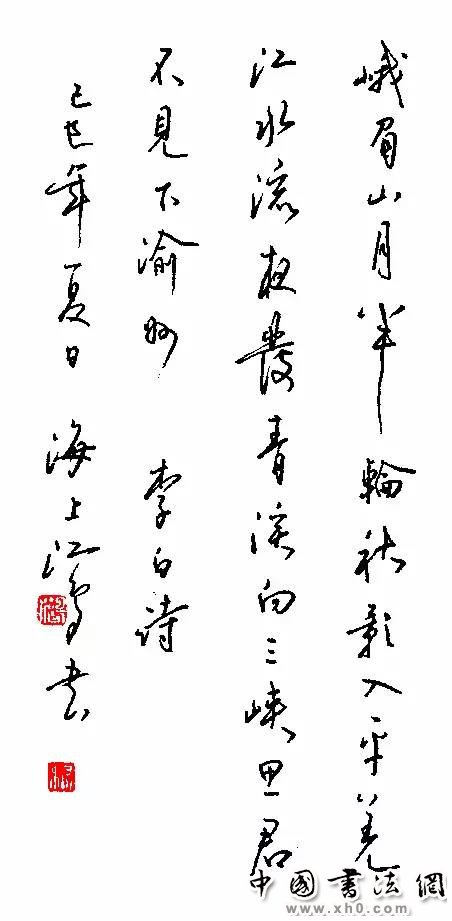 峨眉山月半輪秋影入平羌
江水流夜發青溪向三峽思君
不見下渝州 李白詩
己巳年夏日 海上江書
中國書法網
www.xh0.com